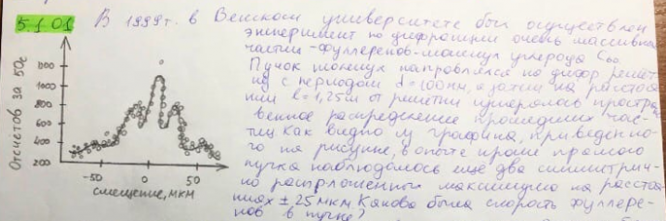 5.1.01
В 1999 г. в Венском университете был осуществлен
эксперимент по дифракции очень массивных
частиц - фуллеренов - молекул углерода C60.
Пучок молекул направлялся на дифр. решёт
ку с периодом d = 100 нм, а затем на расстоя
нии l = 1,25 м от решетки измерялось простра
венное распределение прошедших час-
тиц. Как видно из графика, приведенно-
го на рисунке, в опыте кроме прямого
пучка наблюдалось ещё два симметрич-
но расположенных максимума на расстоя
ниях ± 25 мкм. Какова была скорость фуллере-
нов в пучке?
Отсчетов за 50с
1200
1000
800
600
400
200
-50 0 50
смещение, мкм